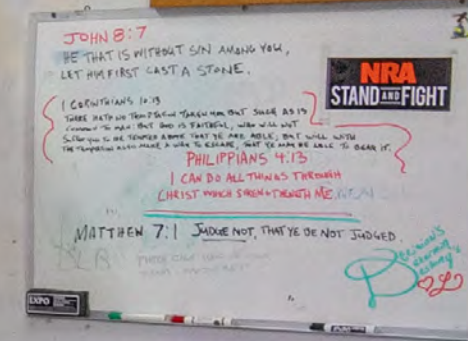 JOHN 8:7
HE THAT IS WITHOUT SIN AMONG YOU,
LET HIM FIRST CAST A STONE.
NRA
STAND AND FIGHT
1 CORINTHIANS 10:13
THERE HATH NO TEMPTATION TAKEN YOU BUT SUCH AS IS
COMMON TO MAN: BUT GOD IS FAITHFUL, WHO WILL NOT
SUFFER YOU TO BE TEMPTED ABOVE THAT YE ARE ABLE; BUT WILL WITH
THE TEMPTATION ALSO MAKE A WAY TO ESCAPE, THAT YE MAY BE ABLE TO BEAR IT.
PHILIPPIANS 4:13
I CAN DO ALL THINGS THROUGH
CHRIST WHICH STRENGTHENETH ME.
MATTHEW 7:1 JUDGE NOT, THAT YE BE NOT JUDGED.
EXPO